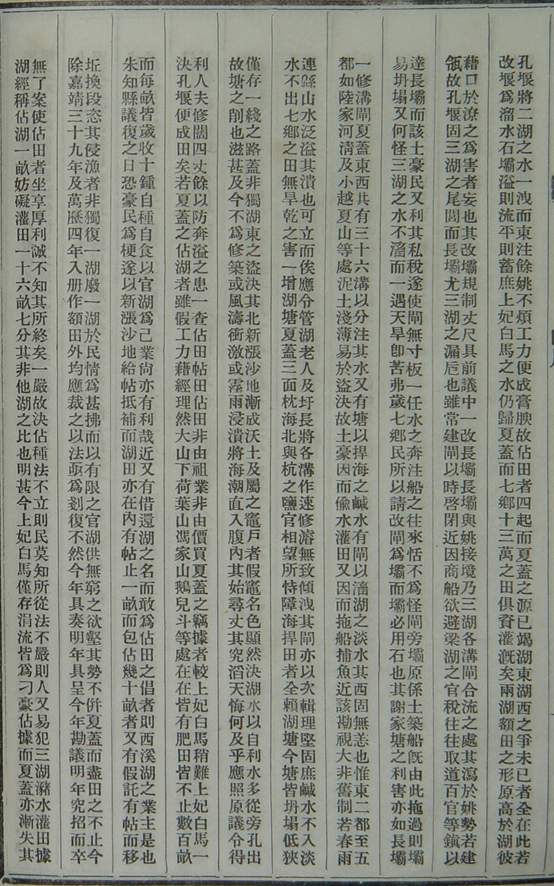 孔堰將二湖之水一洩而東注餘姚不煩工力便成膏腴故佔田者四起而夏蓋之源已竭湖東湖西之爭未已者全在此若
改堰爲溜水石壩溢則流平則蓄庶上妃白馬之水仍歸夏蓋而七鄉十三萬之田俱資灌漑矣兩湖額田之形原高於湖彼
藉口於潦之爲害者妄也其改壩規制丈尺具前議中一改長壩長壩與姚接境乃三湖各溝閘合流之處其瀉於姚勢若建
瓴故孔堰固三湖之尾閭而長壩尤三湖之漏巵也雖常建閘以時啓閉近因商船欲避梁湖之官稅往往取道百官等鎭以
達長壩而該土豪民又利其私稅遂使閘無寸板一任水之奔注船之往來恬不爲怪閘旁壩原係土築船旣由此拖過則壩
易坍塌又何怪三湖之水不涸而一遇天旱卽苦弗歲七鄉民所以請改閘爲壩而壩必用石也其謝家塘之利害亦如長壩
一修溝閘夏蓋東西共有三十六溝以分注其水又有塘以捍海之鹹水有閘以瀦湖之淡水其西固無恙也惟東二都至五
都如陸家河淸及小越夏山等處泥土淺薄易於盜決故土豪因而偸水灌田又因而拖船捕魚近該勘視大非舊制若春雨
連緜山水泛溢其潰也可立而俟應令管湖老人及圩長將各溝作速修濬無致傾洩其閘亦以次輯理堅固庶鹹水不入淡
水不出七鄉之田無旱乾之害一增湖塘夏蓋三面枕海北與杭之鹽官相望所恃障海捍田者全賴湖塘今塘皆坍塌低狹
僅存一綫之路蓋非獨湖東之盜決其北新漲沙地漸成沃土及屬之竈戶者假竈名色顯然決湖水以自利水多從旁孔出
故塘之削也滋甚及今不爲修築或風濤衝激或霧雨浸潰將海潮直入腹內其始尋丈其究滔天悔何及乎應照原議令得
利人夫修闊四丈餘以防奔溢之患一查佔田帖田佔田非由祖業非由價買夏蓋之竊據者較上妃白馬稍難上妃白馬一
決孔堰便成田矣若夏蓋之佔湖者雖假工力藉經理然大山下荷葉山馮家山鵝兒斗等處在在皆有肥田皆不止數百畝
而每畝皆歲收十鍾自種自食以官湖爲己業尙亦有利哉近又有借還湖之名而敢爲佔田之倡者則西溪湖之業主是也
朱知縣議復之日恐豪民爲梗遂以新漲沙地給帖抵補而湖田亦在內有帖止一畝而包佔幾十畝者又有假託有帖而移
坵換段恣其侵漁者非獨復一湖廢一湖於民情爲甚拂而以有限之官湖供無窮之欲壑其勢不併夏蓋而盡田之不止今
除嘉靖三十九年及萬歷四年入册作額田外均應裁之以法亟爲剗復不然今年具奏明年具呈今年勘議明年究招而卒
無了案使佔田者坐享厚利誠不知其所終矣一嚴故決佔種法不立則民莫知所從法不嚴則人又易犯三湖瀦水灌田據
湖經稱佔湖一畝妨礙灌田一十六畝七分其非他湖之比也明甚今上妃白馬僅存涓流皆爲刁豪佔據而夏蓋亦漸失其